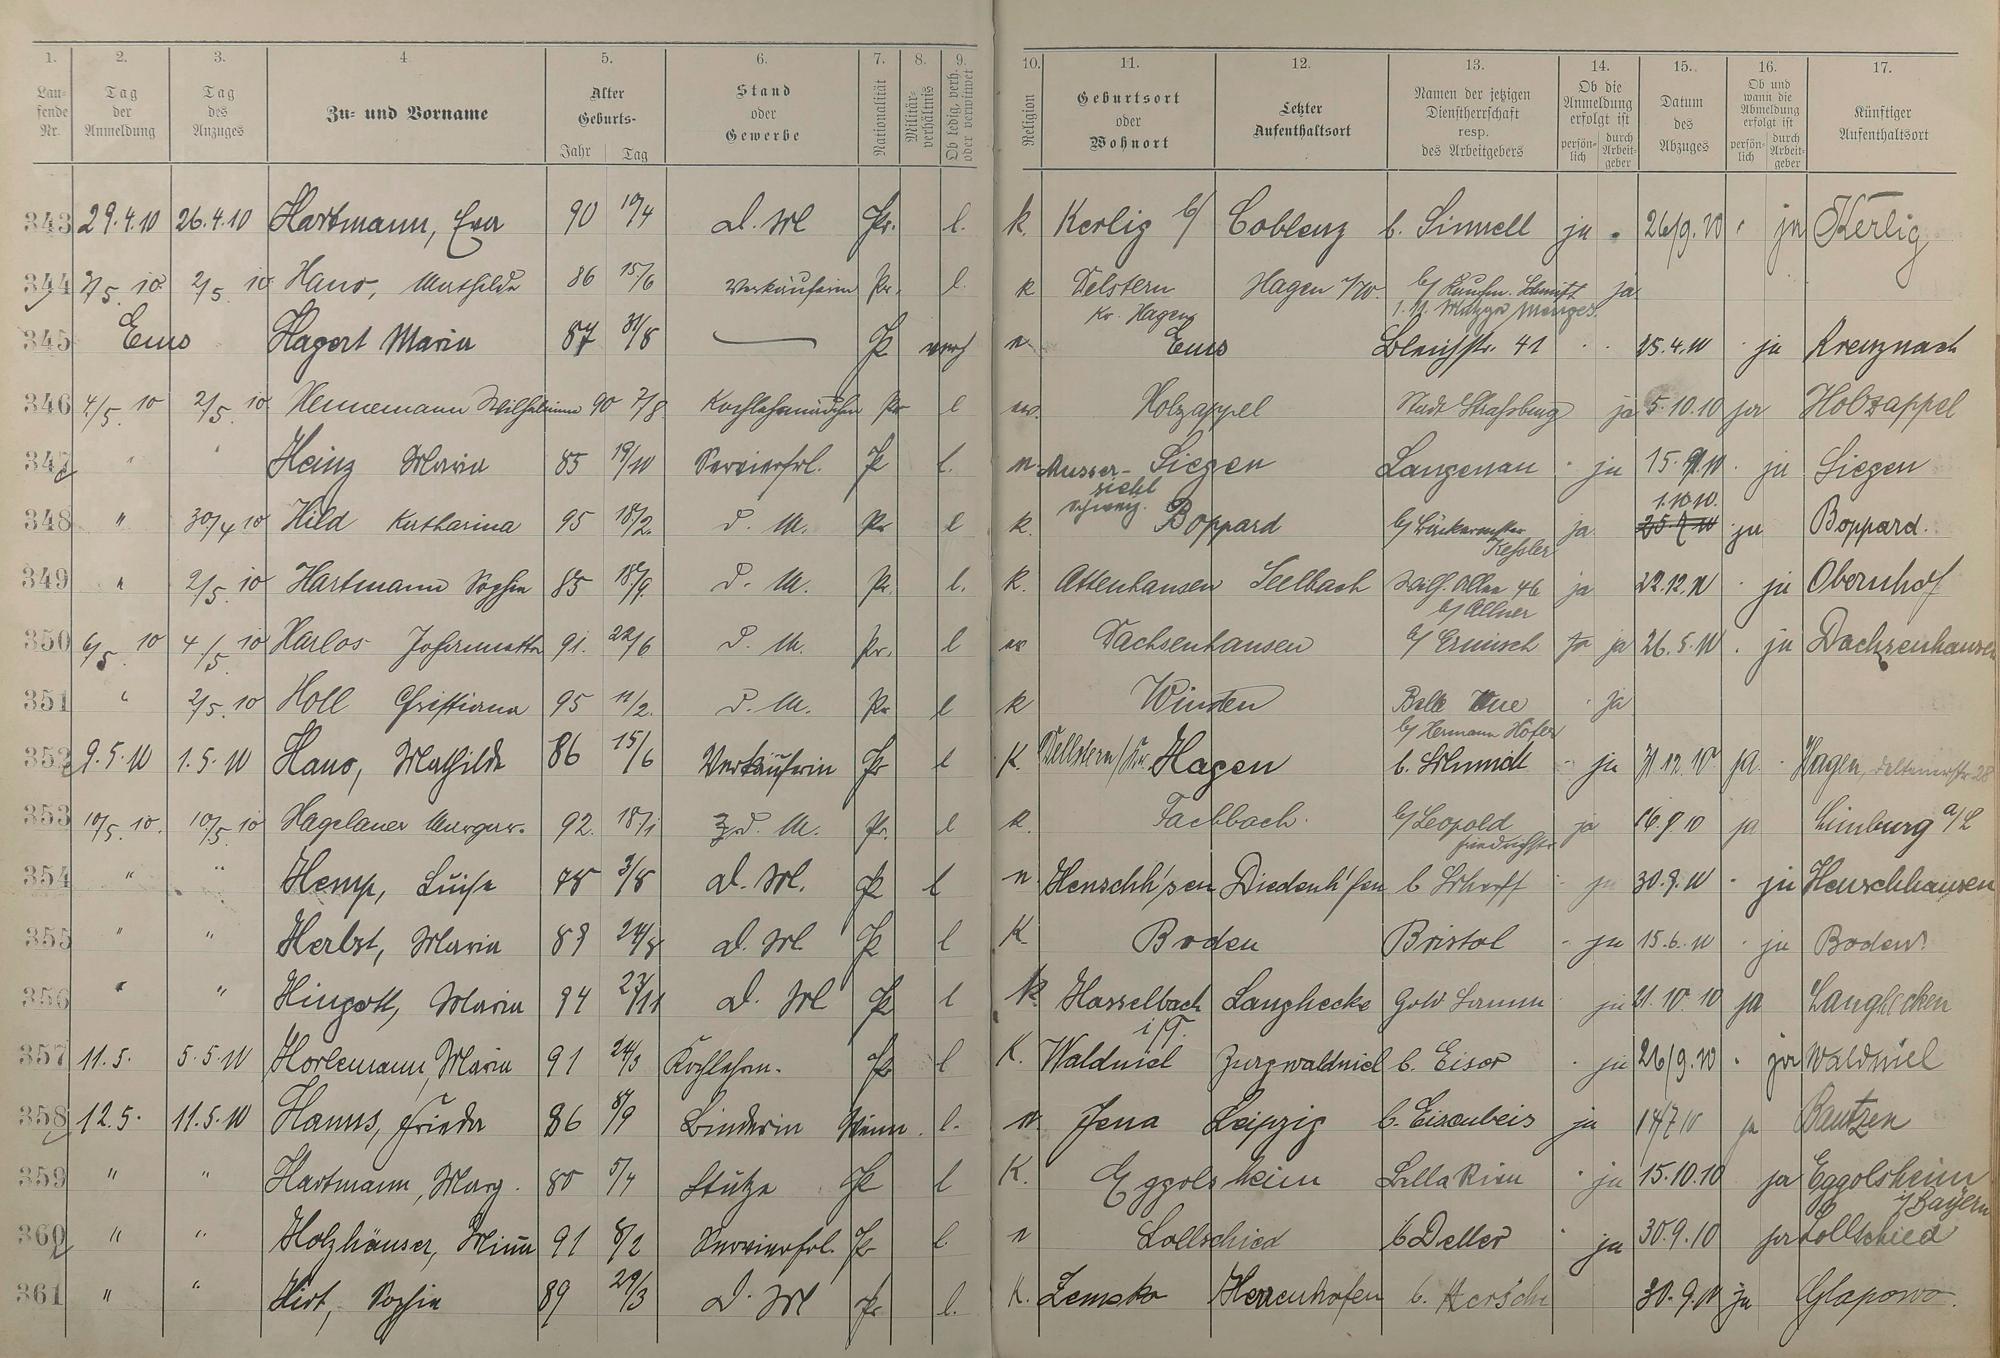 1. 2. 3. 4. 5. 6. 7. 8. 9. 10. 11. 12. 13. 14. 15. 16. 17.
Laufende Nr. | Tag der Anmeldung | Tag des Anzuges | Zu- und Vorname | Alter Geburts- Jahr Tag | Stand oder Gewerbe | Nationalität | Militärverhältnis | Ob ledig, verh. oder verwitwet | Religion | Geburtsort oder Wohnort | Letzter Aufenthaltsort | Namen der jetzigen Dienstherrschaft resp. des Arbeitgebers | Ob die Anmeldung erfolgt ist persönlich durch Arbeitgeber | Datum des Abzuges | Ob und wann die Abmeldung erfolgt ist persönlich durch Arbeitgeber | Künftiger Aufenthaltsort
343 29.4.10 26.4.10 Hartmann, Eva 90 19/4 D. M Pr. l. k. Kerlig b/ Coblenz b. Sinnell ja 26/9.10 ja Kerlig
344 2/5. 10 Hano, Mathilde 86 15/6 Verkäuferin Pr. l. k Delstern Kr. Hagen Hagen i/W. b/ Kaufm. Schmidt ja
345 Ems Hagert Maria 87 31/8 Pr verh Ems Bleichstr. 41 25.4.10 ja Kreuznach
346 4/5. 10 2/5. 10 Hennemann Wilhelmine 90 7/8 Kochlehrmädchen Pr l Holzappel Stadt Strassburg ja 5.10.10 ja Holzappel
347 " " Heinz Maria 85 19/10 Servierfrl. P l. Siegen Langenau ja 15.9.10 ja Siegen
348 " 30/4 10 Hild Katharina 95 18/2. D. M. Pr l k. Boppard b/ Bäckermeister Kessler ja 1.10.10. ja Boppard.
349 " 2/5. 10 Hartmann Sophie 85 18/9. D. M. Pr. l. k. Attenhausen Seelbach Wilh. Allee 46 b/ Allner ja 22.12.10 ja Obernhof
350 6/5. 10 4/5. 10 Harlos Johannette 91. 22/6 D. M. Pr. l Dachsenhausen b/ Ermisch ja 26.5.10 ja Dachsenhausen
351 " 2/5. 10 Holl Christiana 95 11/2. D. M. Pr l k Winden Belle Vue ja
352 9.5.10 1.5.10 Hano, Mathilde 86 15/6 Verkäuferin Pr l K. Dellstern/Kr. Hagen b/ Hermann Höfer b. Schmidt ja 31.12.10 ja Hagen,
353 10/5. 10. 10/5. 10 Hagelauer Margar. 92. 18/1 D. M. Pr. l k. Fachbach. b/ Leopold Friedrichstr. ja 16.9.10 ja Limburg a/L
354 " " Hemp, Luise 78 3/8 D. M. Pr l Henschh'sen Diedenh'fen b Scharff ja 30.9.10 ja Henschhausen
355 " " Herbst, Maria 89 24/8 D. M. Pr l K Boden Bristol ja 15.6.10 ja Boden.
356 " " Hingott, Maria 94 23/11 D. M Pr l K. Hasselbach i/T. Langhecke Gold ja 21.10.10 ja Langhecken
357 11.5. 5.5.10 Horlemann, Maria 91 24/3 Kochlehrn. Pr l K. Waldniel Burgwaldniel b. Eisor ja 26/9.10 ja Waldniel
358 12.5. 11.5.10 Hanns, Frieda 86 8/9 Binderin l. Jena Leipzig b. Eisenbeis ja 14/7 10 ja Bautzen
359 " " Hartmann, Marg. 80 5/4 Stütze Pr l K. Eggolsheim Bella Riva ja 15.10.10 ja Eggolsheim i/Bayern
360 " " Holzhäuser, Minna 91 8/2 Servierfrl. Pr l. Lollschied b Deller ja 30.9.10 ja Lollschied
361 " " Hirt, Sophie 89 29/3 D. M Pr l. K. Zemsko Herrenhofen b. ja 30.9.10 ja Glapowo.